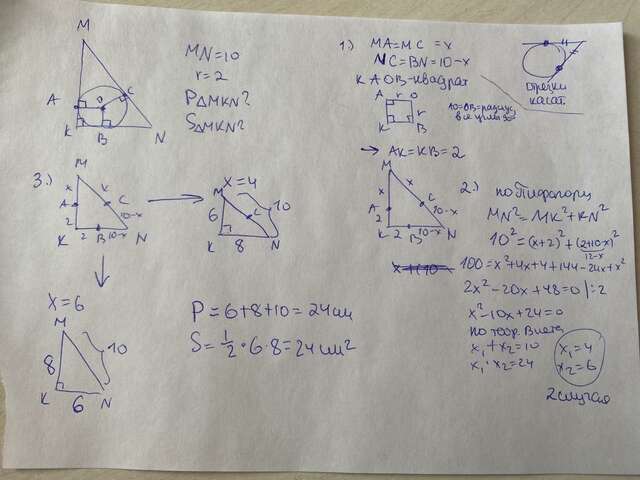 M
A
O
C
K
B
N
MN=10
r=2
P△MKN?
S△MKN?
1.) MA=MC=x
NC=BN=10-x
KAOB-квадрат
A r O
r
K B
AO=OB=радиус,
все углы 90°
отрезки
касат.
→ AK=KB=2
M
x x
A C
2 10-x
K 2 B 10-x N
2.) по Пифагору
MN²=MK²+KN²
10²=(x+2)²+(2+10-x)²
12-x
100=x²+4x+4+144-24x+x²
2x²-20x+48=0 |:2
x²-10x+24=0
по теор. Виета
x₁+x₂=10
x₁·x₂=24
x₁=4
x₂=6
2 случая
3.)
M
x x
A C
2 10-x
K 2 B 10-x N
x=4
M
6 C 10
K 8 N
x=6
M
8 10
K 6 N
P=6+8+10=24см
S=1/2·6·8=24см²